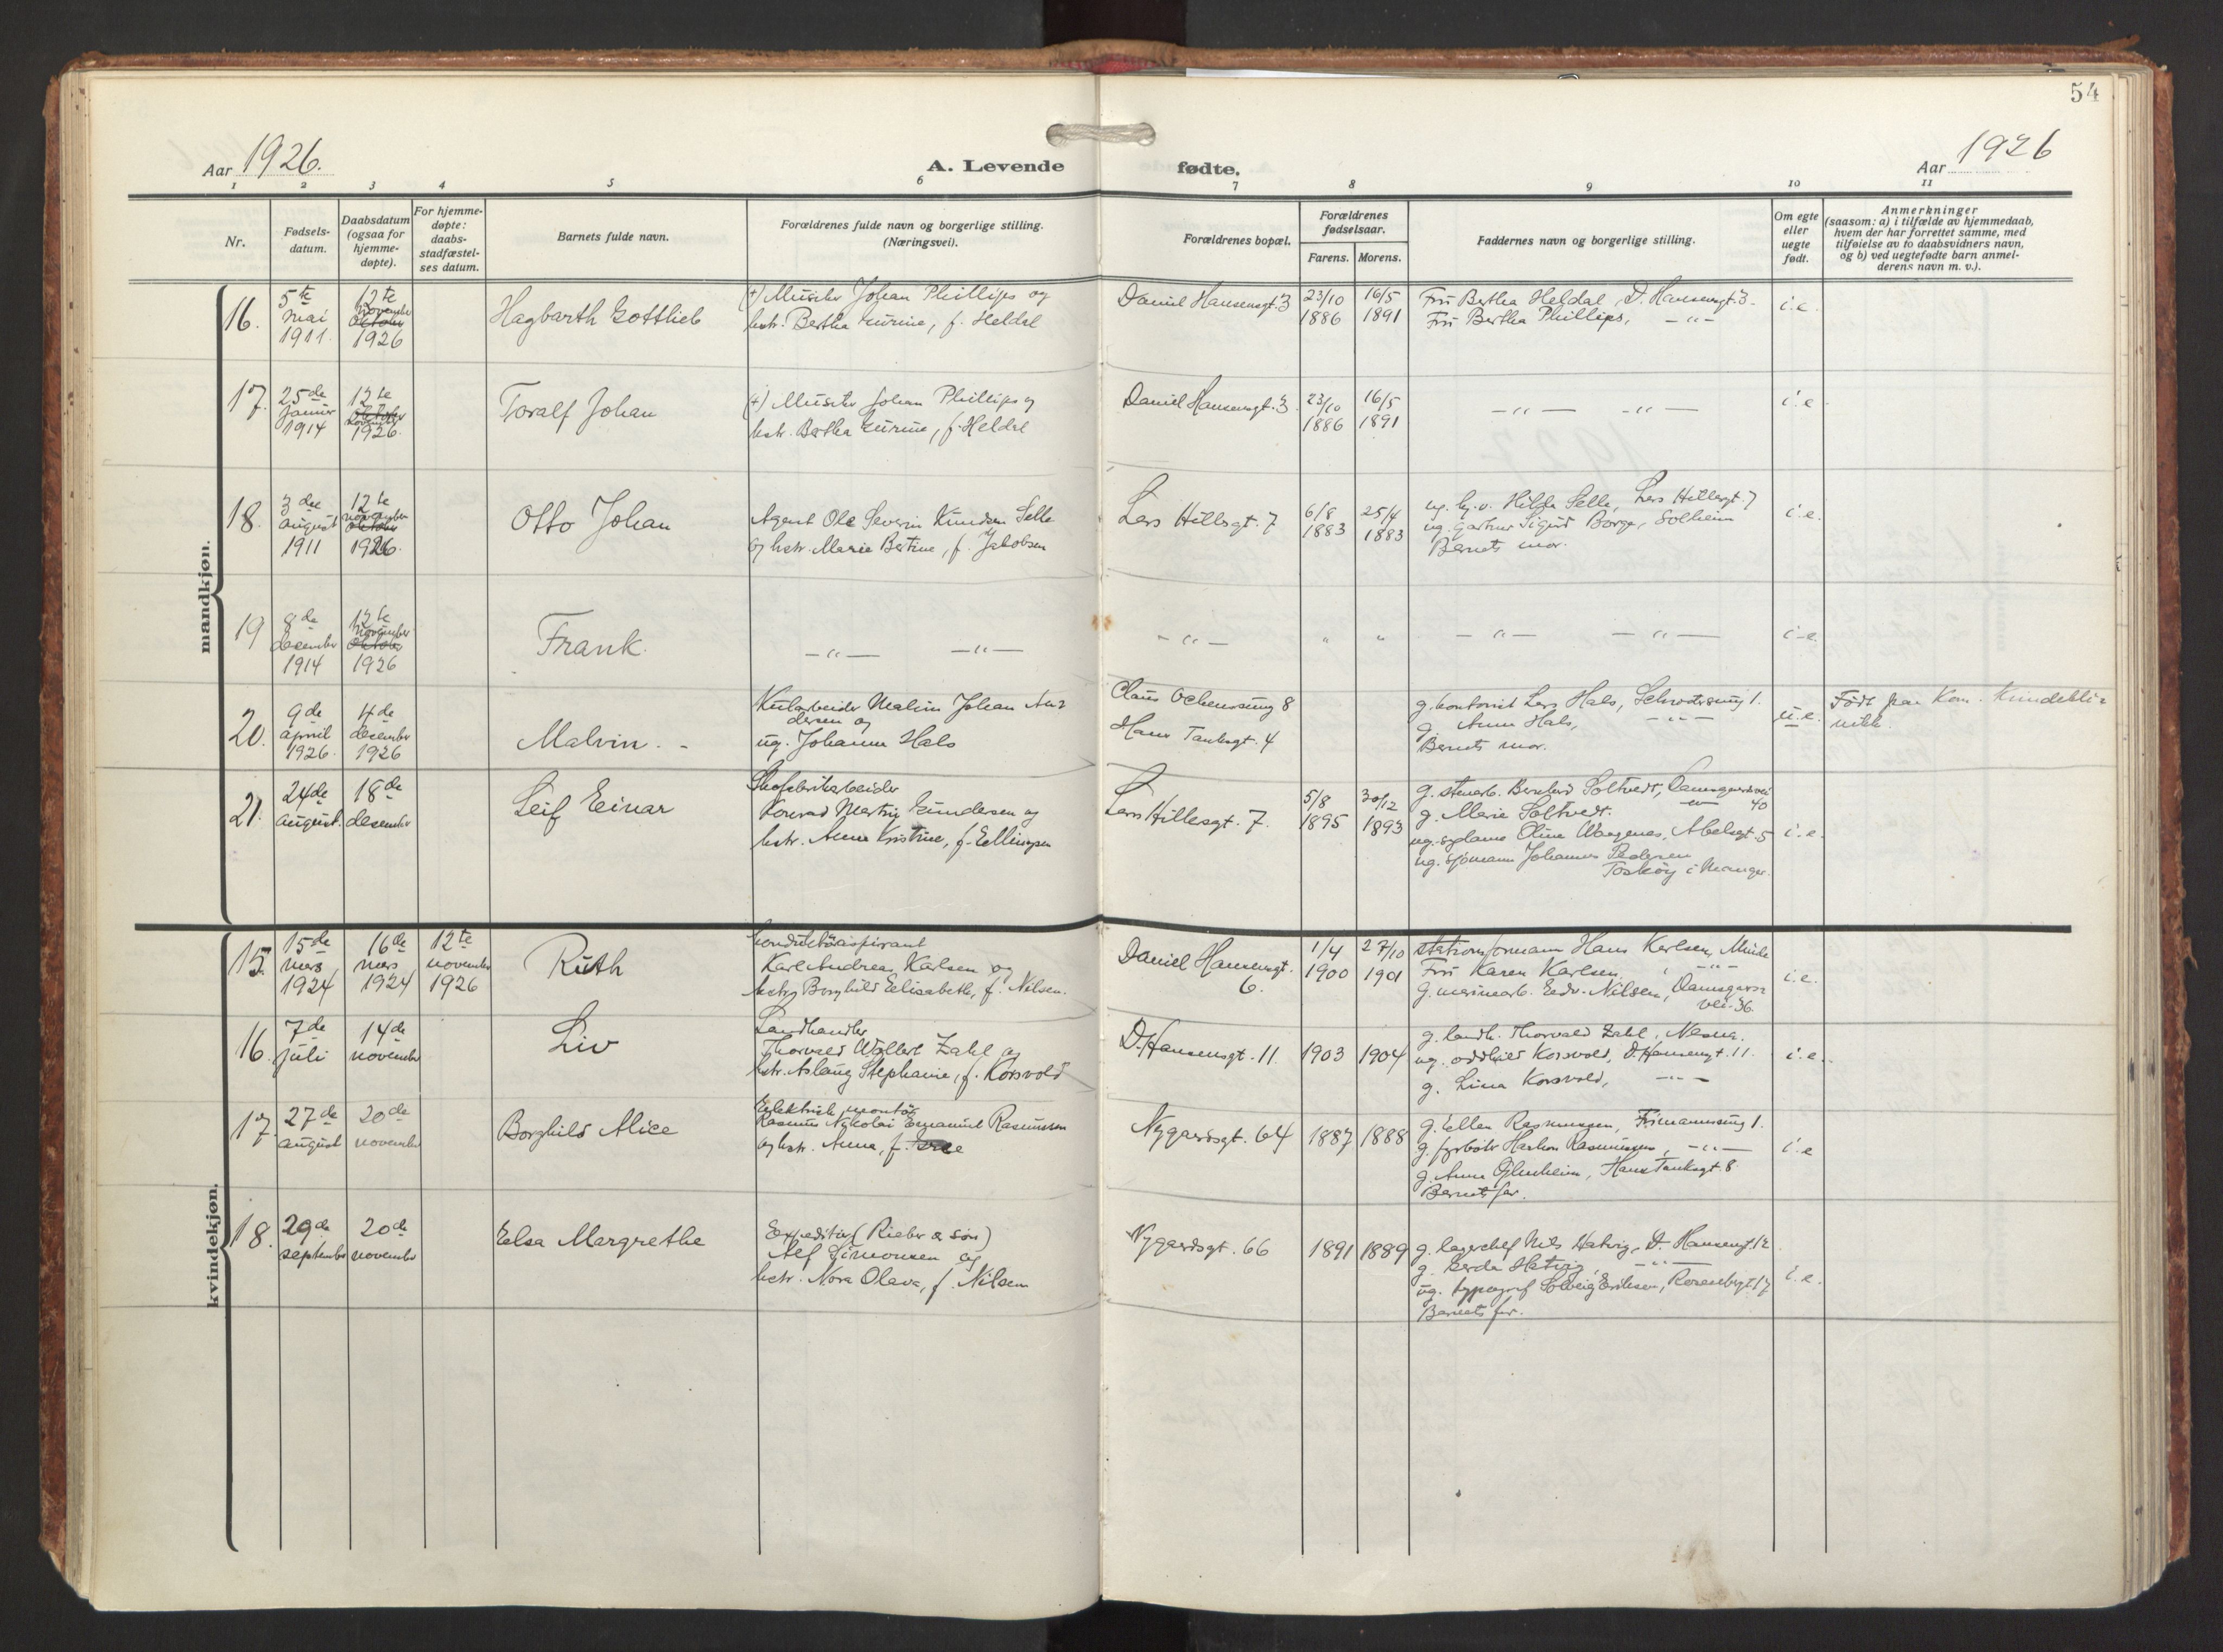 54
Aar 1926.
A. Levende fødte.
Aar 1926
1 2 3 4 5 6 7 8 9 10 11
Nr.
Fødsels-
datum.
Daabsdatum
(ogsaa for
hjemme-
døpte).
For hjemme-
døpte:
daabs-
stadfæstel-
ses datum.
Barnets fulde navn.
Forældrenes fulde navn og borgerlige stilling.
(Næringsvei).
Forældrenes bopæl.
Forældrenes
fødselsaar.
Farens. Morens.
Faddernes navn og borgerlige stilling.
Om egte
eller
uegte
født.
Anmerkninger
(saasom: a) i tilfælde av hjemmedaab,
hvem der har forrettet samme, med
tilføielse av to daabsvidners navn,
og b) ved uegtefødte barn anmel-
derens navn m. v.).
mandkjøn.
16.
5te
mai
1911.
12te
november
oktober
1926
Hagbarth Gottlieb
(+) Musiker Johan Phillips og
hstr. Bertha , f. Heldal
Daniel Hansensgt. 3
23/10
1886
16/5
1891
Fru Bertha Heldal, D. Hansensgt. 3.
Fru Bertha Phillips, -"-
i.e.
17.
25de
januar
1914
12te
oktober
november
1926.
Toralf Johan
(+) Musiker Johan Phillips og
hstr. Bertha , f. Heldal
Daniel Hansensgt. 3
23/10
1886
16/5
1891
-"- -"-
i.e.
18.
3die
august
1911
12te
november
oktober
1926.
Otto Johan
Agent Ole Severin Knudsen Selle
og hstr. Marie Bertine, f. Jakobsen
Lars Hillesgt. 7
6/8
1883
25/4
1883
ug. Hilda Selle, Lars Hillesgt. 7
ug. gartner Sigurd Borge, Solheim
Barnets mor.
i.e.
19
8de
desember
1914
12te
november
oktober
1926
Frank.
-"- -"-
-"-
" "
-"- -"-
i.e.
20.
9de
april
1926.
4de
desember
1926
Malvin.
Kularbeider Malvin Johan An=
dersen og
ug. Johanna Hals
Claus Ockenssmug 8
Hans Tanksgt. 4
g. kontorist Lars Hals, Schrødersmug 1.
g. Anna Hals, -"-
Barnets mor.
u.e.
Født paa Kom. Kvindekli=
nikk.
21.
24de
august.
18de
desember
Leif Einar
Skofabrikarbeider
Konrad Martin Gundersen og
hstr. Anna Kristine, f. Ellingsen
Lars Hillesgt. 7.
5/8
1895
30/12
1893
g. stenarb. Bernhard Soltvedt, Damsgaardsvei
40
g. Marie Soltvedt. -"-
ug. sydame Olina Waagenes, Abelsgt. 5
ug. sjømann Johannes Pedersen
Toskøy i Manger.
i.e.
kvindekjøn.
15.
15de
mars
1924
16de
mars
1924
12te
november
1926
Ruth
Konduktøraspirant
Karl Andreas Karlsen og
hstr. Borghild Elisabeth, f. Nilsen.
Daniel Hansensgt.
6.
1/4
1900
27/10
1901
stationsformann Hans Karlsen, Minde
Fru Karen Karlsen, -"-
g. marinearb. Edv. Nilsen, Damsgaards
vei 36.
i.e.
16.
7de
juli
14de
november
Liv
Landhandler
Thorvald Wollert Zahl og
hstr. Aslaug Stephanie, f. Korsvold
D. Hansensgt. 11.
1903
1904
g. landh. Thorvald Zahl, Nesna.
ug. Oddhild Korsvold, D. Hansensgt. 11.
g. Lina Korsvold, -"-
i.e.
17.
27de
august
20de
november
Borghild Alice
Elektrisk montør
Rasmus Nikolai Emanuel Rasmussen
og hstr. Anna, f.
Nygaardsgt. 64
1887
1888
g. Ellen Rasmussen, Frimannsmug 1.
g. fyrbøter Haakon Rasmussen, -"-
g. Anna Glenheim, Hans Tanksgt. 8.
Barnets far.
i.e
18.
29de
september
20de
november
Elsa Margrethe
Expeditør (Rieber & søn)
Alf Simonsen og
hstr. Nora Olava, f. Nilsen
Nygaardsgt. 66
1891
1889
g. lagerchef Nils Hatvig, D. Hansensgt. 12.
g. Gerda Hatvig, -"-
ug. typograf Solveig Eriksen, Rosenbergt. 17
Barnets far.
i.e.